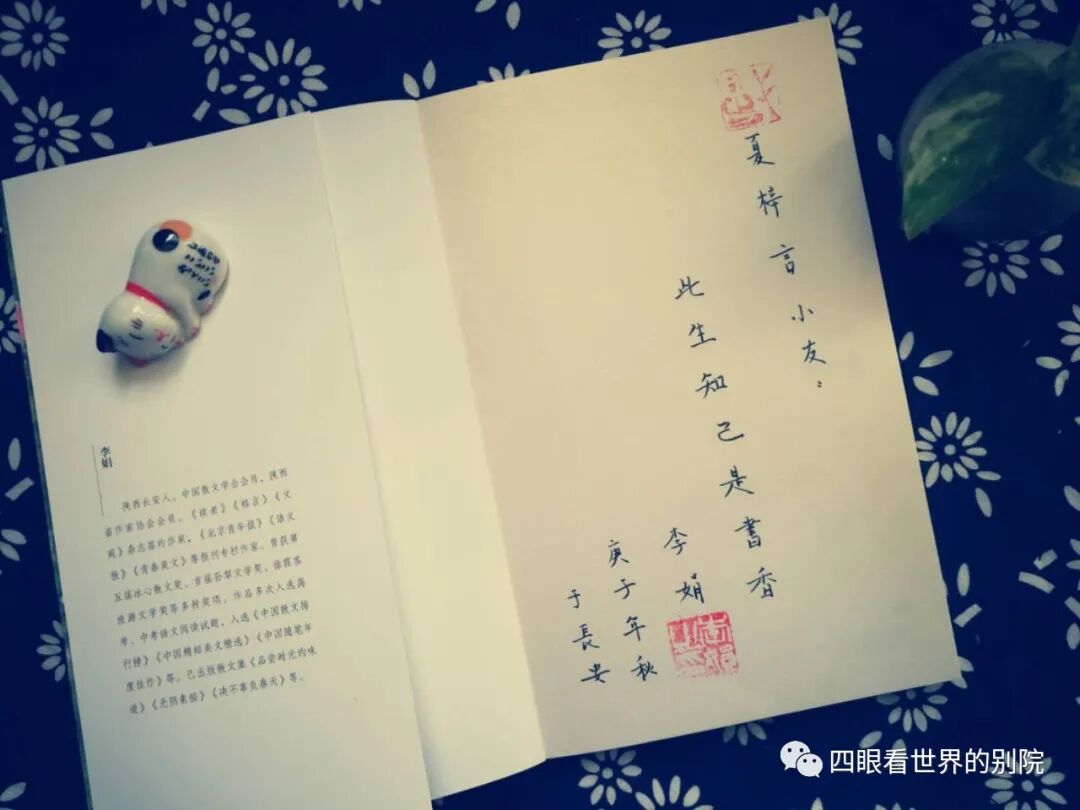 李娟
陕西长安人。中国散文学会会员，陕西
省作家协会会员。《读者》《格言》《文
苑》杂志签约作家，《北京青年报》《语文
报》《青春美文》等报刊专栏作家。曾获第
五届冰心散文奖、首届孙犁文学奖、徐霞客
旅游文学奖等多种奖项。作品多次入选高
考、中考语文阅读试题，入选《中国散文排
行榜》《中国精短美文精选》《中国随笔年
度佳作》等。已出版散文集《品尝时光的味
道》《光阴素描》《决不辜负春天》等。
夏梓言小友：
此生知己是書香
李娟
庚子年秋
于長安
四眼看世界的别院